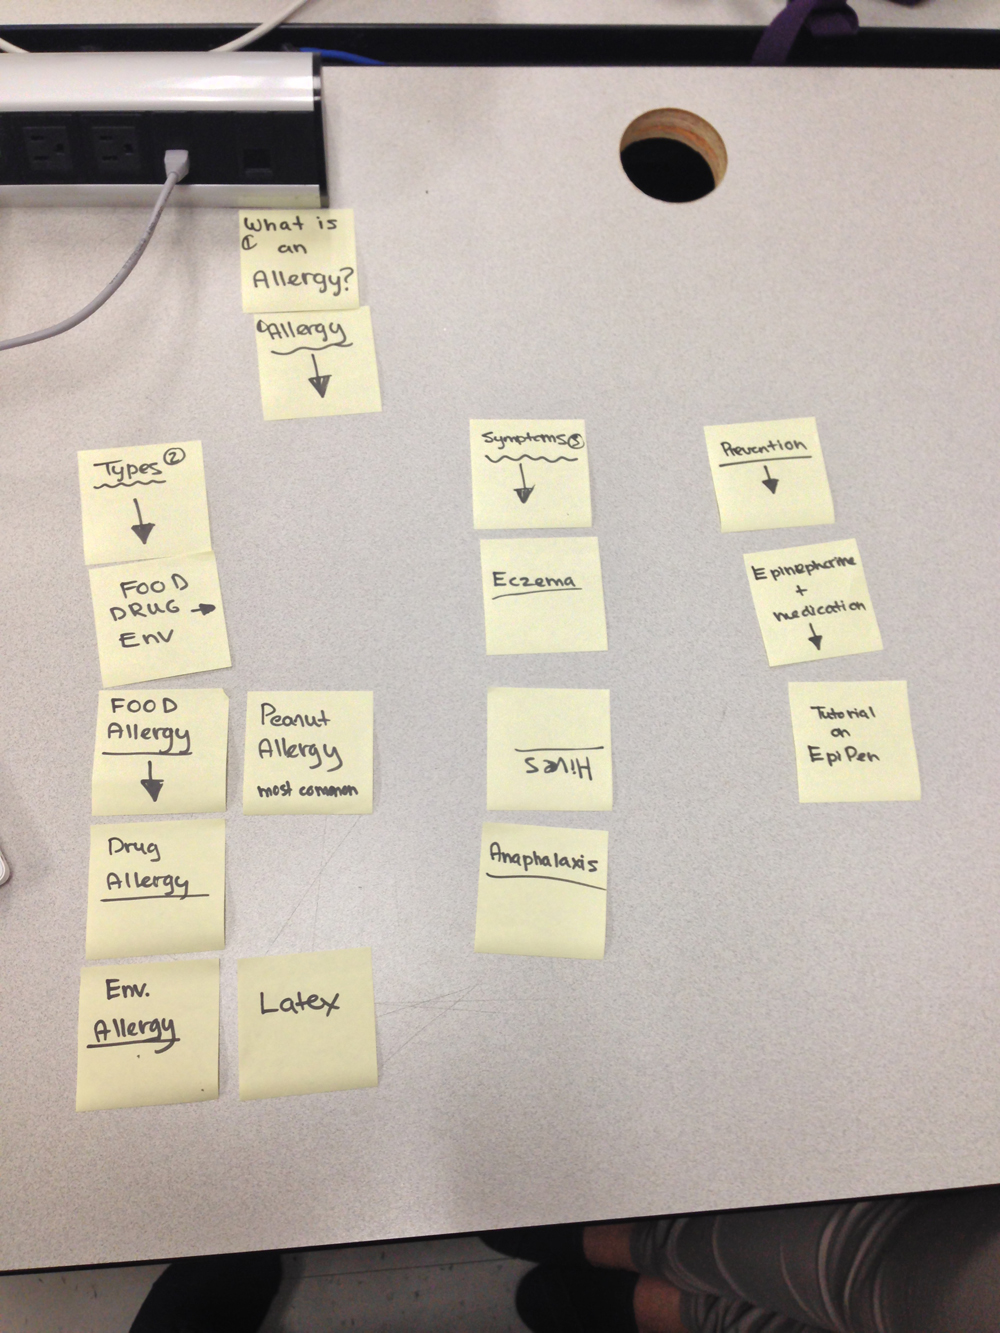 What is
① an
Allergy?
Allergy
Types ②
FOOD
DRUG →
Env
FOOD
Allergy
Peanut
Allergy
most common
Drug
Allergy
Env.
Allergy
Latex
Symptoms ③
Eczema
Hives
Anaphalaxis
Prevention
Epinepherine
+
medication
Tutorial
on
EpiPen